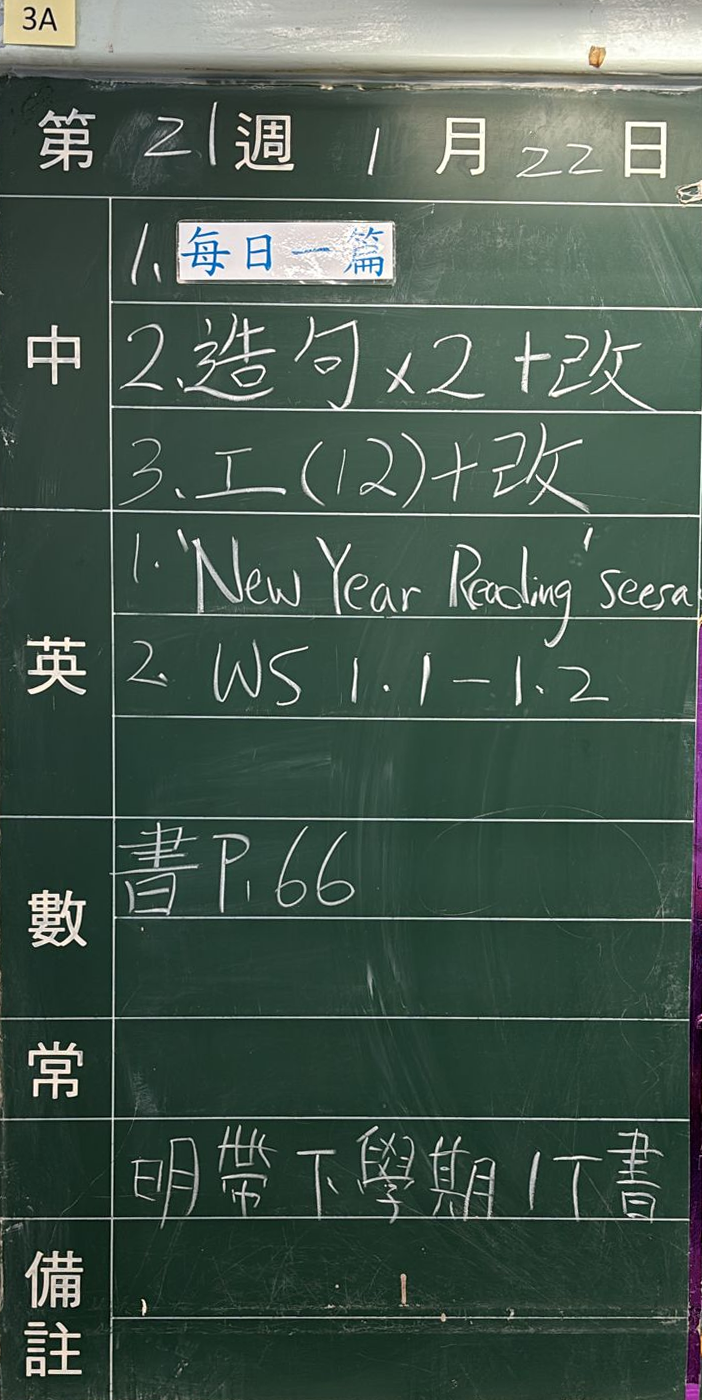 3A
第 21 週 1 月 22 日
中
1. 每日一篇
2. 造句 x2 +改
3. 工(12)+改
英
1. 'New Year Reading' seesa
2. WS 1.1 - 1.2
數
書 P. 66
常
明帶下學期 IT書
備註